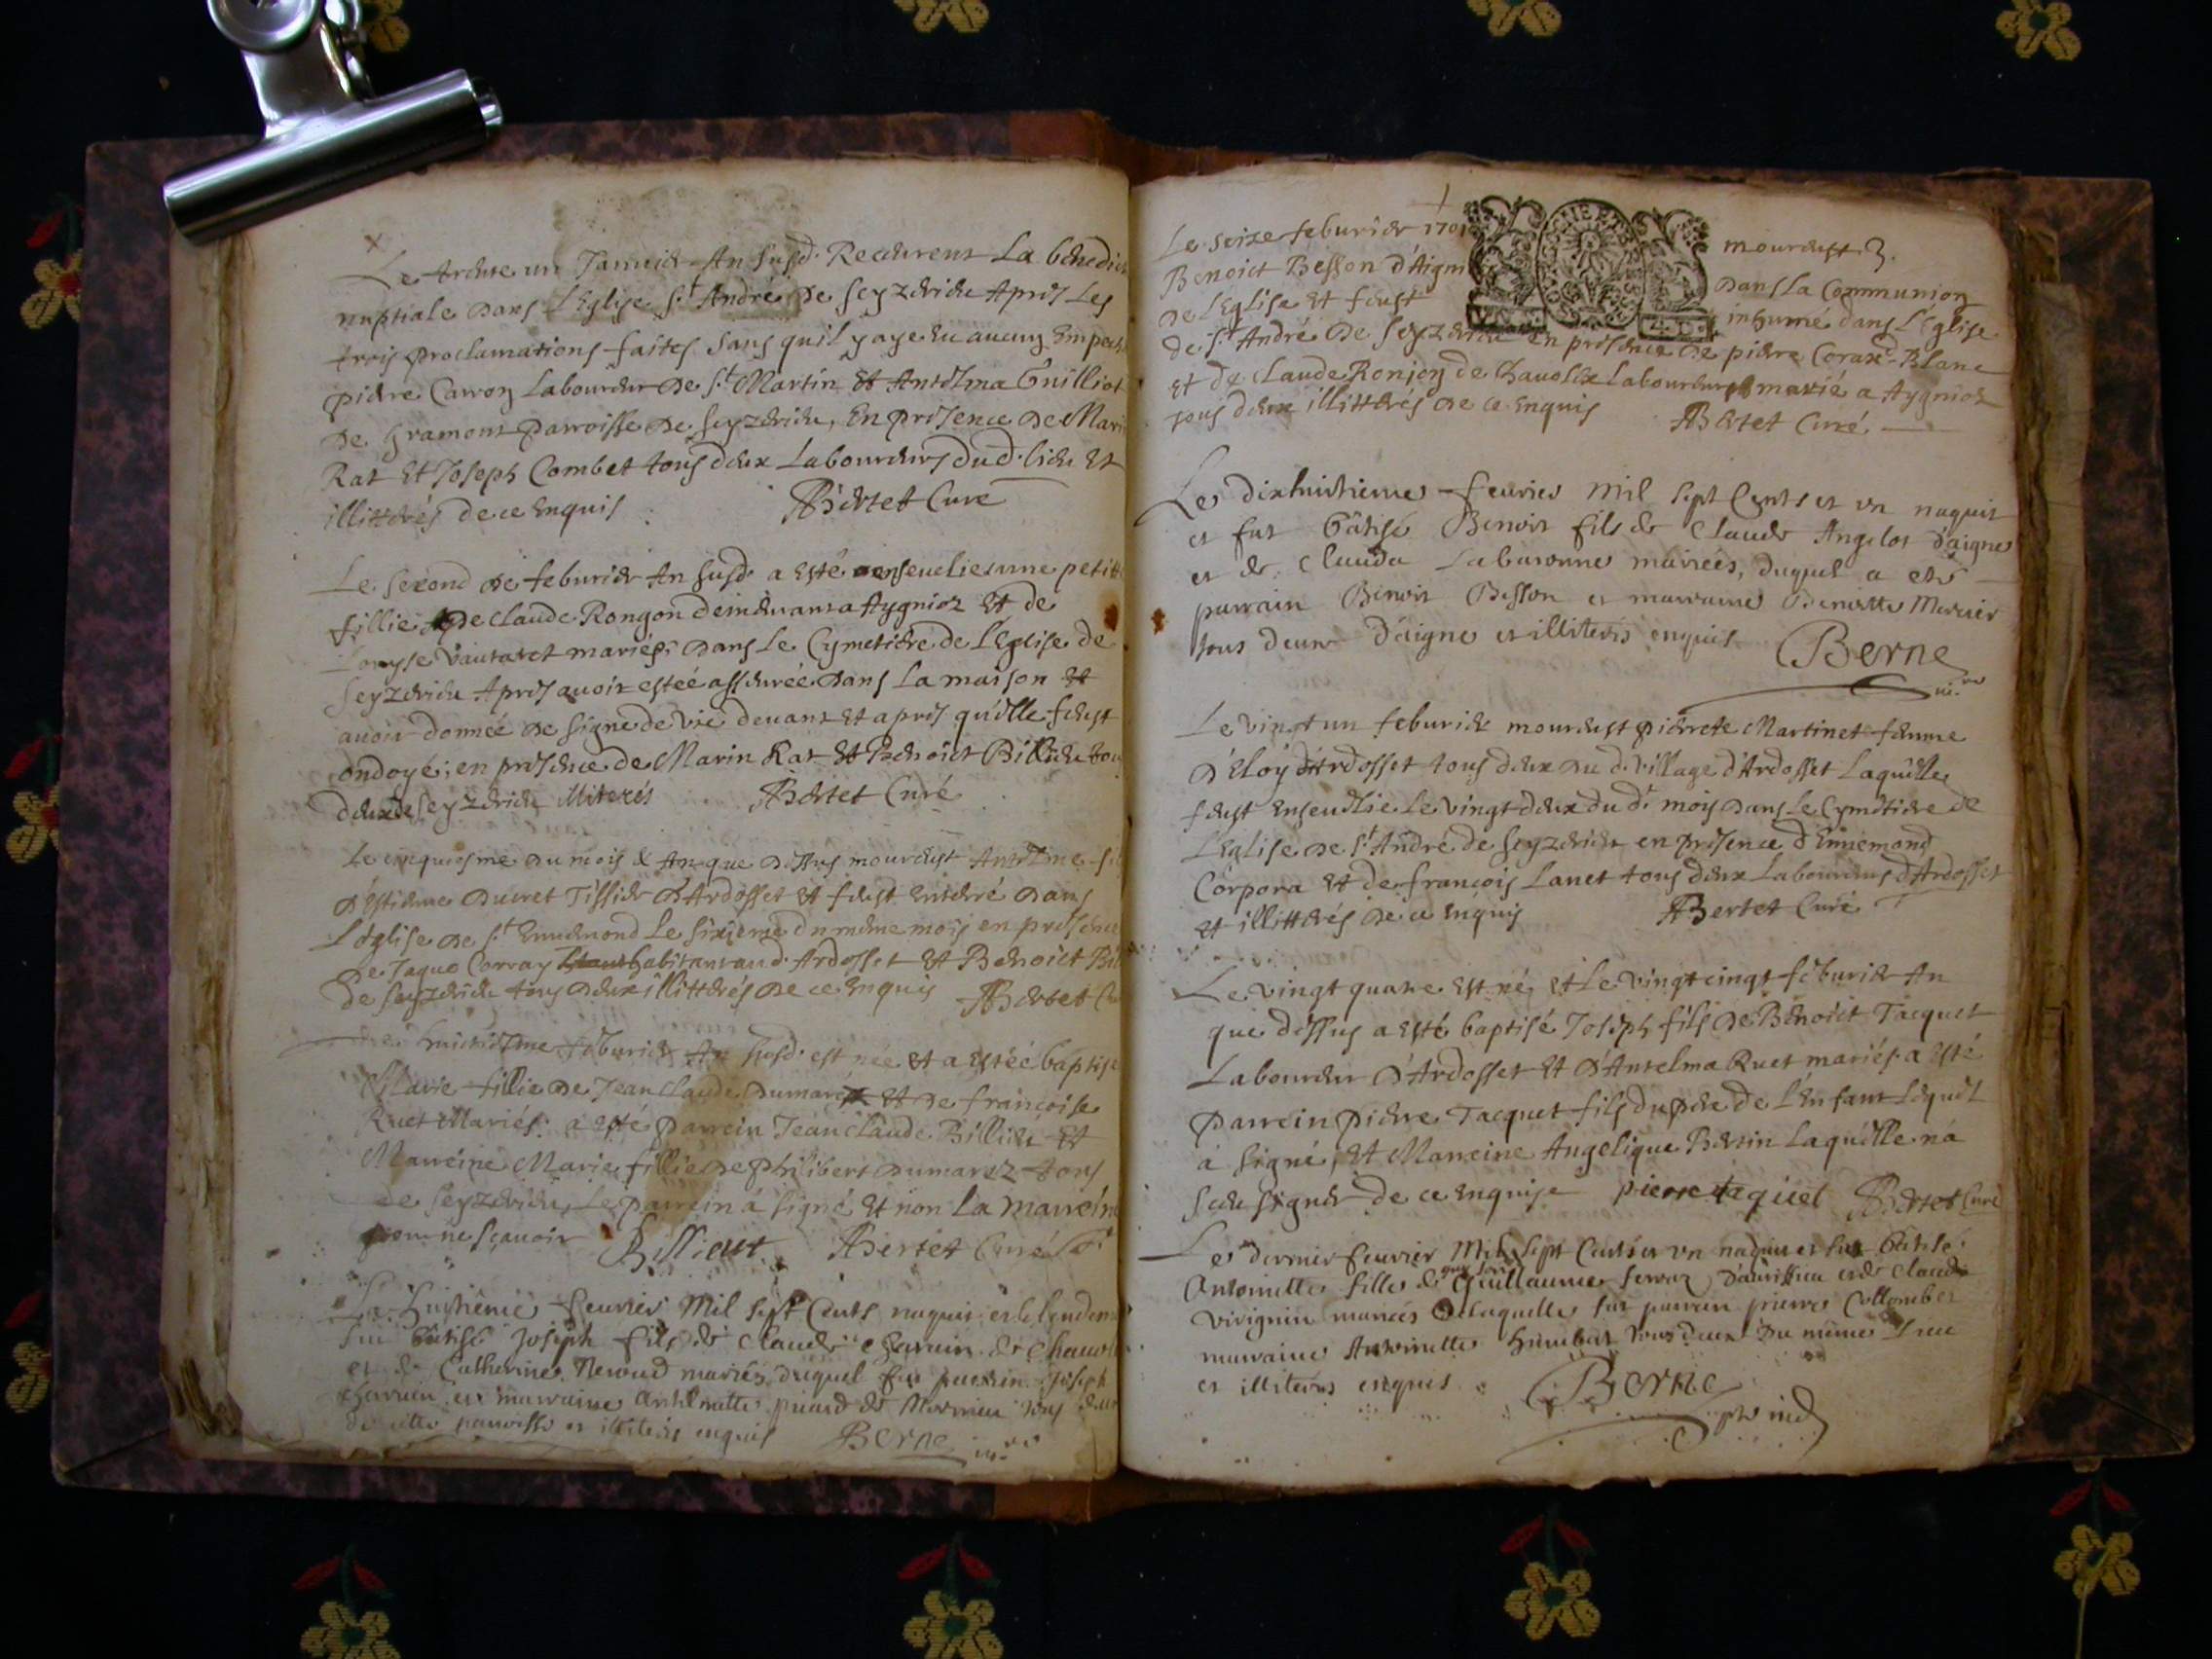 Le trente un Januier An susd. Receurent La benedict
nuptiale dans L'Eglise St. André de Seyzerieu Apres Les
trois proclamations faites sans quil y aye eu aucun Empech
pierre Carron Laboureur de St. Martin Et Antelma Guilliot
de Gramont parroisse de Seyzerieu, En presence de Mari
Rat Et Joseph Combet tous deux Laboureurs dud. lieu Et
illitterés de ce Enquis ABertet Curé
Le second de feburier An susd. a Esté ensevelie une petitte
fillie de Claude Rongon demeurant a Aygnioz Et de
Louyse Vautaret mariés, dans Le Cymetiere de L'Eglise de
Seyzerieu Apres auoir estéé assurée dans La maison Et
auoir donnéé de signe de vie deuant Et apres qu'elle feust
ondoyé; en presence de Marin Rat Et Benoict Billieu tou
deux de Seyzerieu illiterés ABertet Curé
Le cinquiesme du mois & An que dessus mourust Antelme fi
d'Estienne Ducret Tissier d'Ardosset Et feust enterré dans
L'église de St. Ennemond Le sixieme du mème mois en presence
de Jaque Corray habitant aud. Ardosset Et Benoict Bil
de Seyzerieu tous deux illitterés de ce Enquis ABertet Cu
huictiesme feburier An susd. est née Et a Estéé baptise
Marie fillie de Jean Claude Dumarest Et de françoise
Ruet Mariés. a esté parrein Jean Claude Billieu Et
Marreine Marie fillie de philibert Dumarez tous
de Seyzerieu, Le parrein à signé Et non La marrein
pour ne sçauoir Billieut ABertet Curé
Le huitieme feurier Mil sept Cents naquit et le lendem
fut bâtisé Joseph fils de Claude charuin de Chauol
et de Catherine Neroud mariés duquel fut parrin Joseph
charuin et marraine Anthelmette picard de Mornieu tous deux
de cette parroisse et illiterés enquis Berne
Le seize feburier 1701 mourust
Benoict Besson d'Aigni dans La Communion
de L'Eglise Et feust inhumé dans L'Eglise
de St. André de Seyzerieu en presence de pierre Corax Blanc
et de Claude Ronjon de Chauoley Laboureur marié a Aygnioz
tous deux illitterés de ce Enquis ABertet Curé
Le dixhuitieme feurier Mil sept Cents et un naquit
et fut bâtisé Benoit fils de Claude Angelot d'aigne
et de Clauda Labaronne mariéés, duquel a eté
parrain Benoit Besson et marraine Benoitte Mercier
tous deux d'aigne et illiterés enquis Berne
Le vingt un feburier mourust pierrete Martinet femme
d'Eloy d'Ardosset tous deux du d. village d'Ardosset Laquelle
feust Enseuelie Le vingt deux du d. mois dans Le Cymetiere de
L'Eglise de St. André de Seyzerieu en presence d'Ennemond
Corpora Et de françois Lanet tous deux Laboureurs d'Ardosset
et illitterés de ce enquis ABertet Curé
Le vingt quatre Est né Et Le vingt cinqt feburier An
que dessus a esté baptisé Joseph fils de Benoict Tacquet
Laboureur d'Ardosset Et d'Antelma Ruet mariés. a Esté
parrein pierre Tacquet fils du pere de L'Enfant Lequel
à signé, Et Marreine Angelique Bertin Laquelle n'a
sceu signer de ce enquise pierre taquet ABertet Curé
Le dernier feurier Mil sept Cents et un naquit et fut bâtisé
Antoinette fille de Guillaume Serroz d'aurissieu et de Claude
Virignin mariés de laquelle fut parrain pierre Collombet
marraine Antoinette humbert tous deux du même lieu
et illiterés enquis. Berne